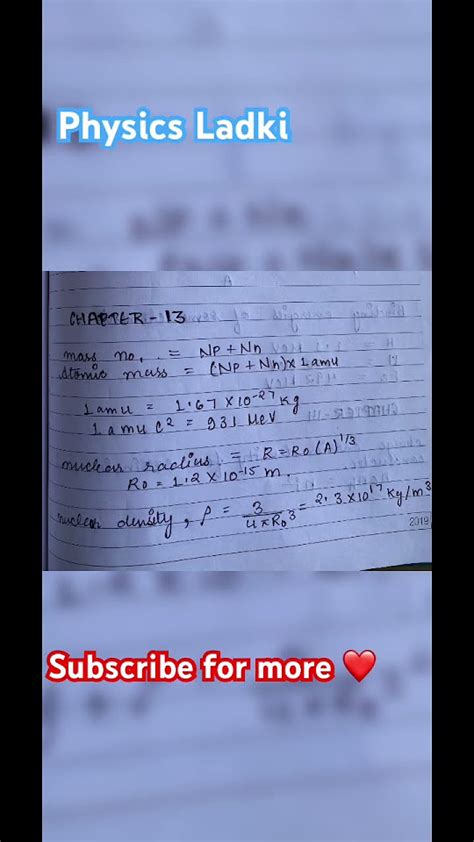 Physics Ladki
CHAPTER - 13
mass no. = Np + Nn
Atomic mass = (Np + Nn) x 1 amu
1 amu = 1.67 x 10⁻²⁷ kg
1 amu c² = 931 MeV
nuclear radius. = R = R₀ (A)^1/3
R₀ = 1.2 x 10⁻¹⁵ m.
nuclear density, ρ = 3/4πR₀³ = 2.3 x 10¹⁷ Kg/m³
2019
Subscribe for more ❤️